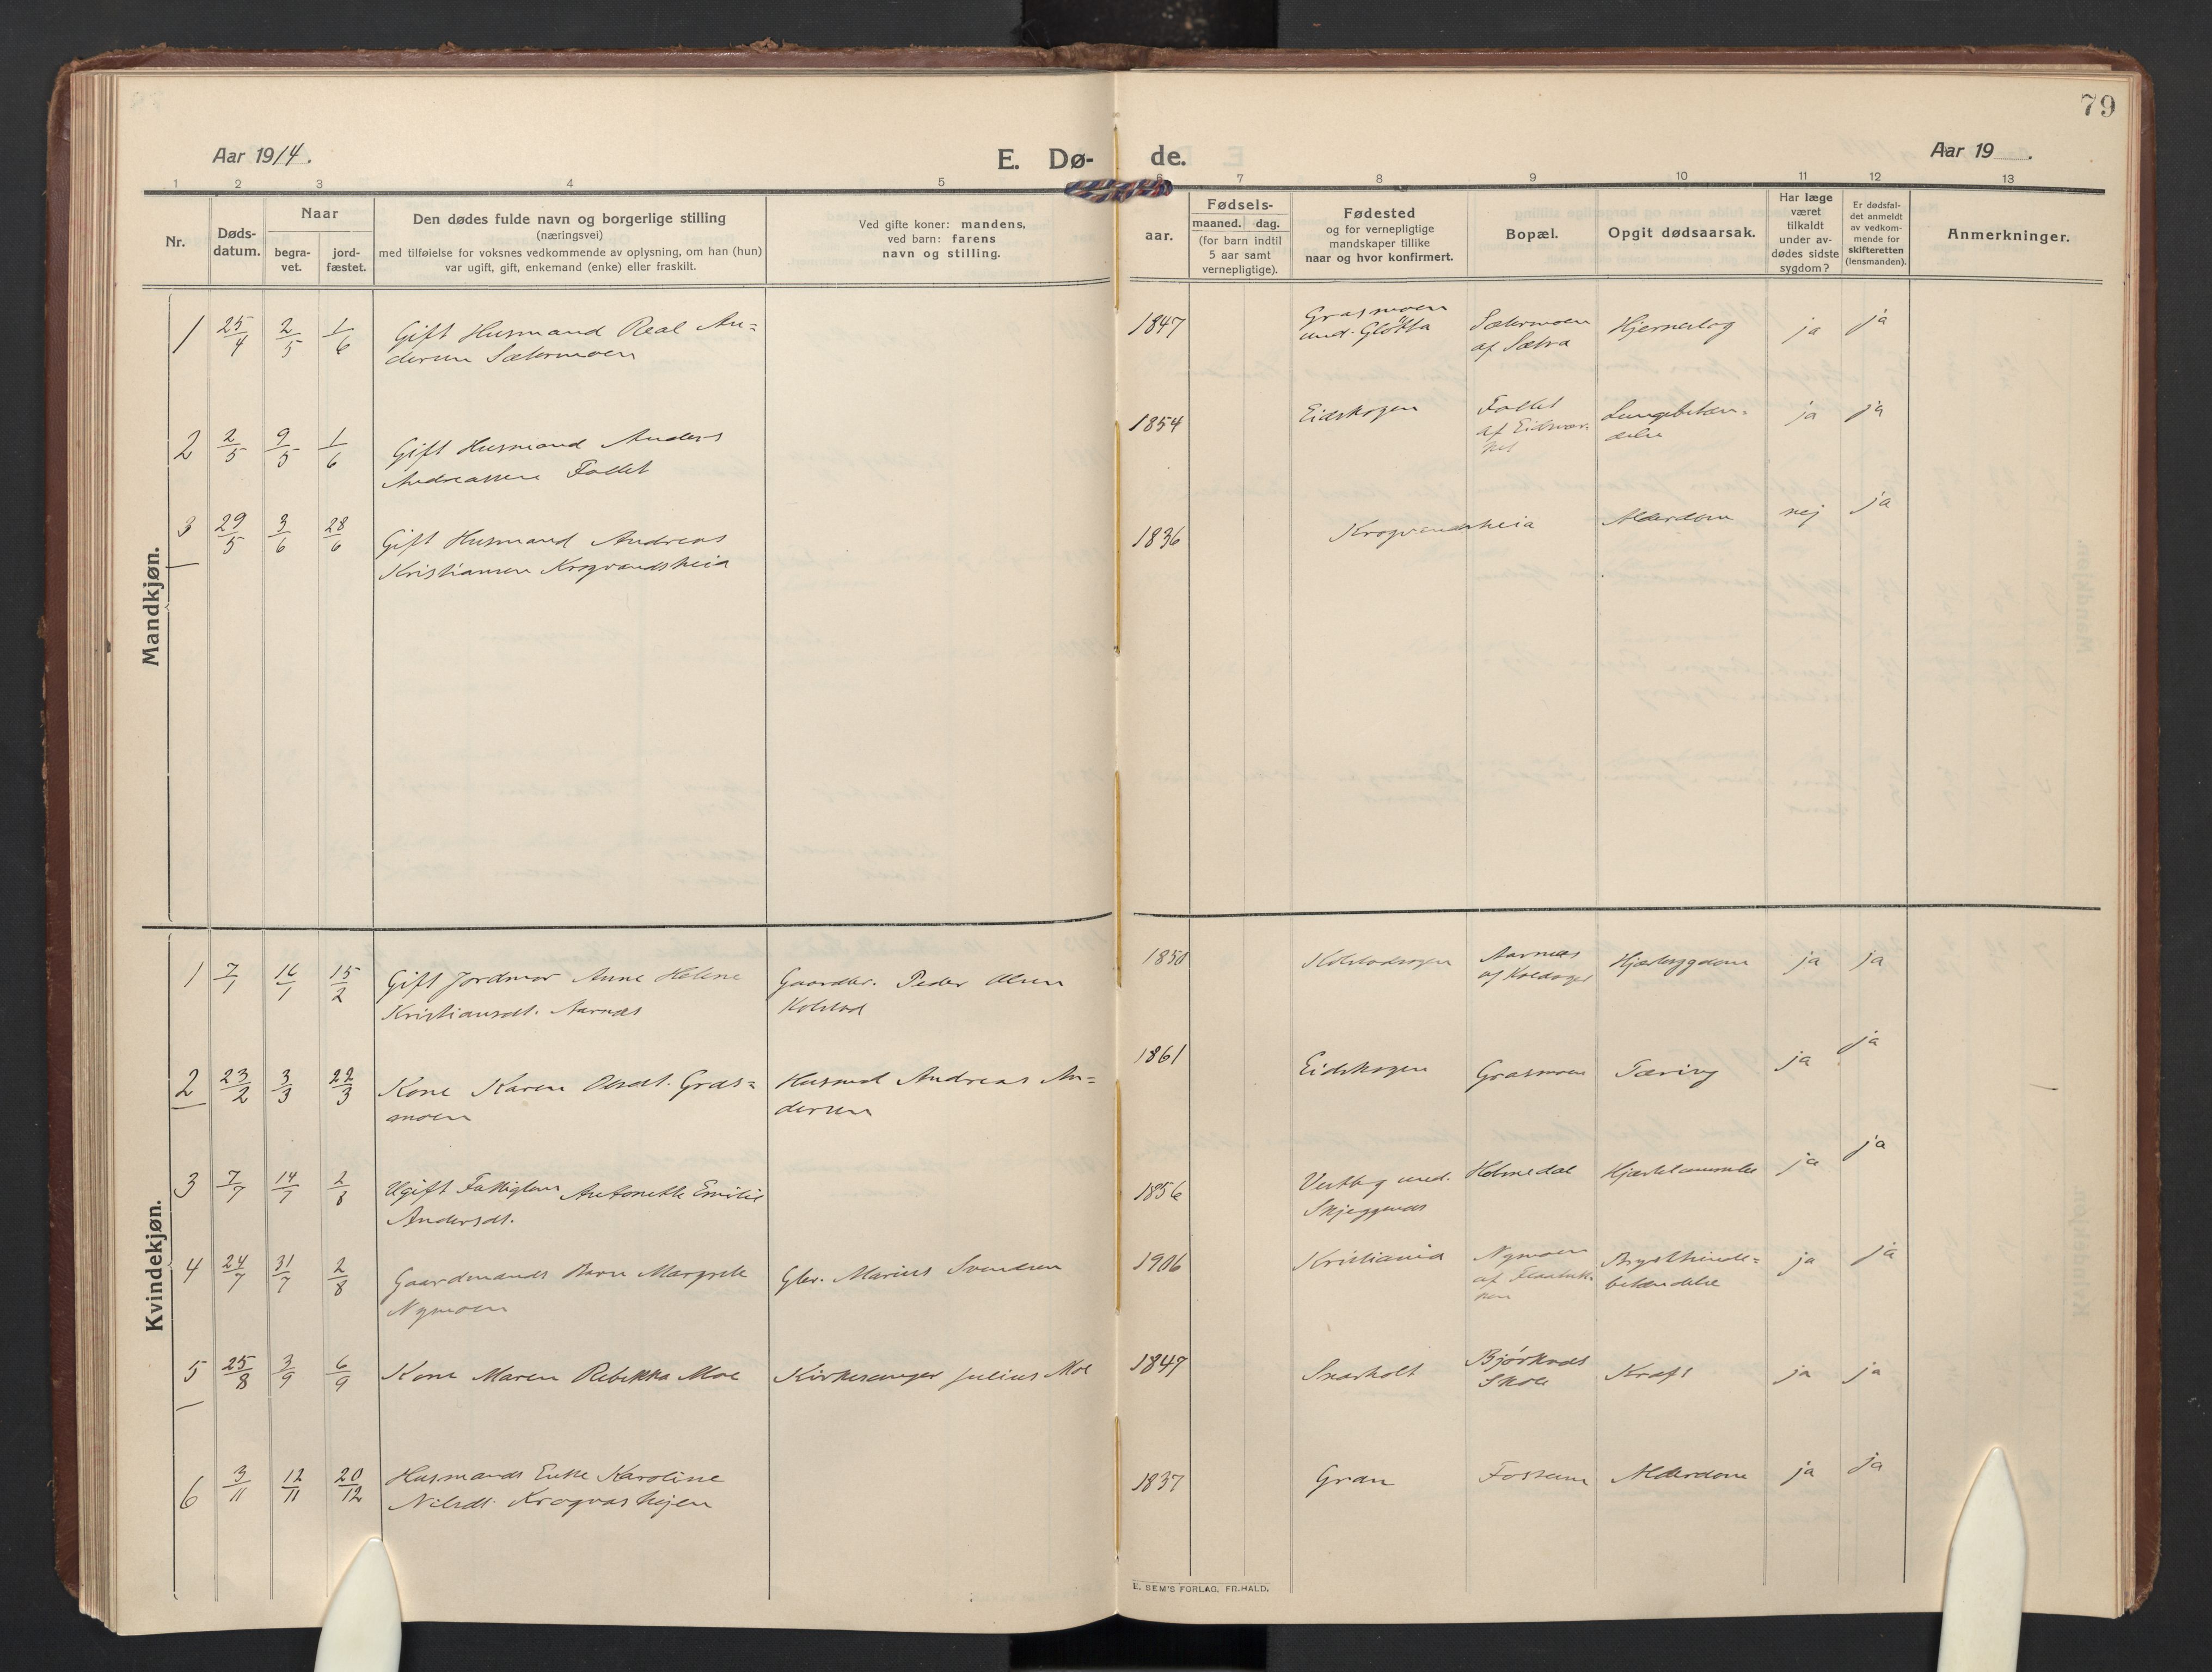 79
Aar 1914.
E. Dø- de.
Aar 19 .
1 2 3 4 5 6 7 8 9 10 11 12 13
Nr.
Døds-
datum.
Naar
begra-
vet.
jord-
fæstet.
Den dødes fulde navn og borgerlige stilling
(næringsvei)
med tilføielse for voksnes vedkommende av oplysning, om han (hun)
var ugift, gift, enkemand (enke) eller fraskilt.
Ved gifte koner: mandens,
ved barn: farens
navn og stilling.
Fødsels-
aar.
maaned. dag.
(for barn indtil
5 aar samt
vernepligtige).
Fødested
og for vernepligtige
mandskaper tillike
naar og hvor konfirmert.
Bopæl.
Opgit dødsaarsak.
Har læge
været
tilkaldt
under av-
dødes sidste
sygdom?
Er dødsfal-
det anmeldt
av vedkom-
mende for
skifteretten
(lensmanden).
Anmerkninger.
Mandkjøn.
1 25/4 2/5 1/6 Gift Husmand Real An=
dersen Sætermoen
1847 Grasmoen
und. Gløtta
Sætermoen
af Sætra
Hjerneslag ja ja
2 2/5 9/5 1/6 Gift Husmand Anders
Andreassen Fallet
1854 Eidskogen
Fallet
af
Lungebetæn-
delse
ja ja
3 29/5 3/6 28/6 Gift Husmand Andreas
Kristiansen Krogvandsheia
1836 Krogvandsheia Alderdom nej ja
Kvindekjøn.
1 7/1 16/1 15/2 Gift Jordmor Anne Helene
Kristiansdt. Aarnæs
Gaardbr. Peder Olsen
Kolstad
1850 Aarnæs
af
ja ja
2 23/2 3/3 22/3 Kone Karen Olsdt. Gras=
moen
Husmd Andreas An=
dersen
1861 Eidskogen Grasmoen Tæring ja ja
3 7/7 14/7 2/8 Ugift Fattiglem Antonette Emilie
Andersdt.
1856 Vestby und.
Skjeggenæs
Holmedal Hjertelammelse ja ja
4 24/7 31/7 2/8 Gaardmands Barn Margrete
Nymoen
Gbr. Marius Svendsen
1906 Kristiania
Nymoen
af
Brysthinde=
betændelse
ja ja
5 25/8 3/9 6/9 Kone Maren Rebekka Moe Kirkesanger Julius Moe
1847 Snarholt
Bjørknæs
Skole
Kræft ja ja
6 3/11 12/11 20/12 Husmands Enke Karoline
Nilsdt. Krogvashejen
1837 Gran Fossum Alderdom ja ja
E. SEM'S FORLAG, FR.HALD.